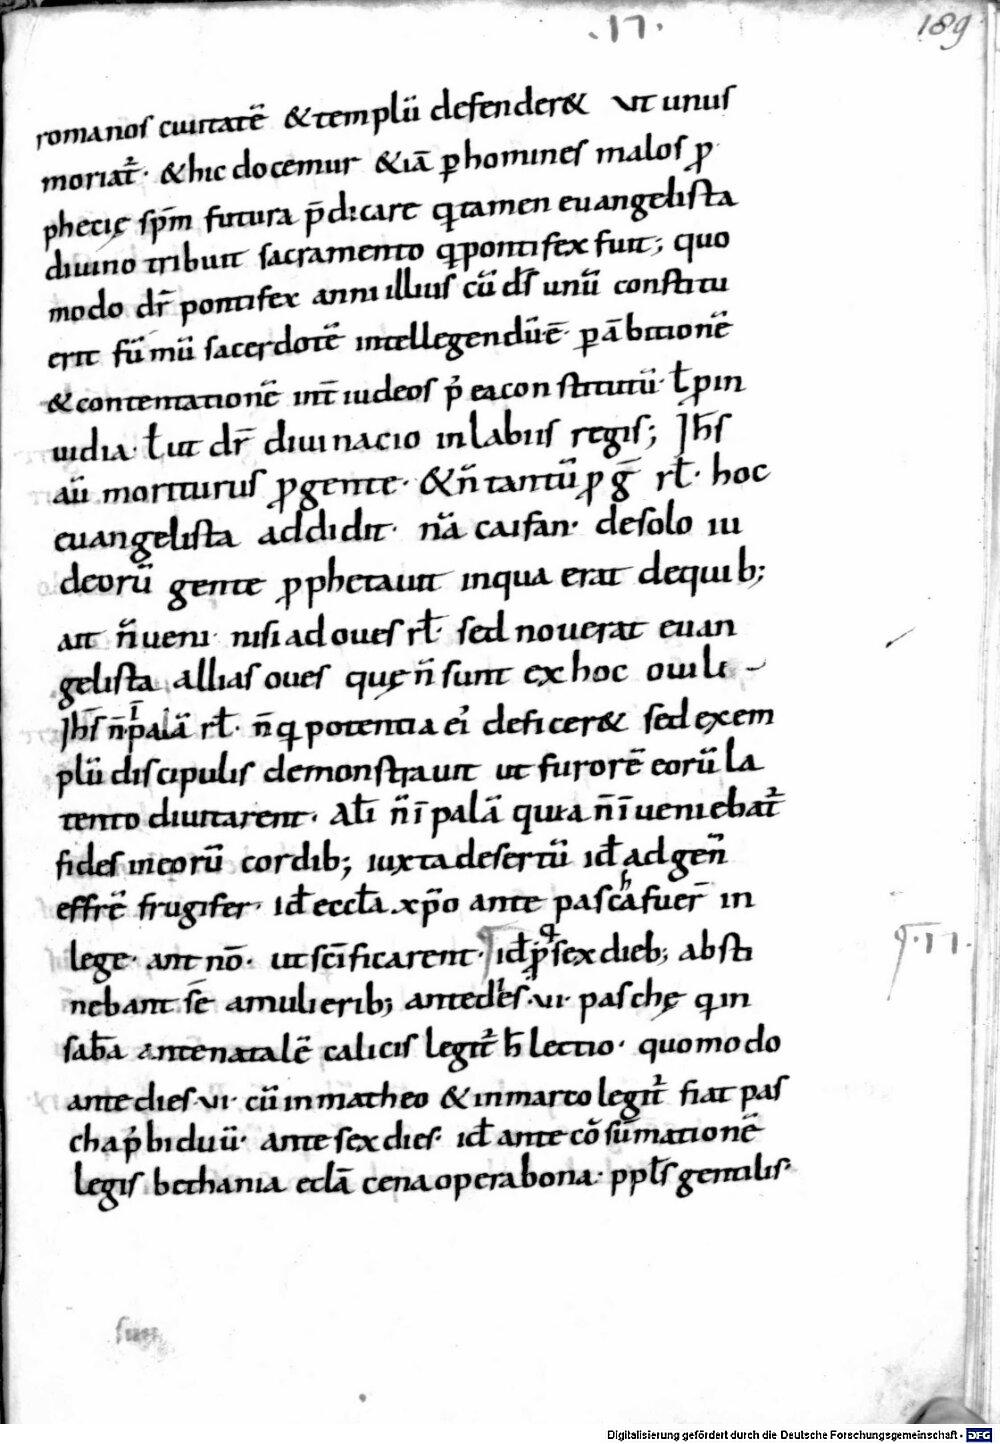 ·17·
189
romanos ciuitatē &templū defender& ut unus
moriat᷑· &hic docemur &iā ꝑhomines malos ꝓ
phecię spm̄ futura p̄dicare qtamen euangelista
diuino tribuit sacramento qpontifex fuit; quo
modo dr̄ pontifex anni illius cū ds̄ unū constitu
erit sūmū sacerdotē intellegendū ē· ꝑ ābitionē
&contentationē int̄ iudeos p̓ ea constitutū· ł ꝓ in
uidia· ł ut dr̄ diuinacio inlabiis regis; Ihs̄
aū moriturus ꝓgente· &n̄ tantū ꝓ ḡ rł· hoc
euangelista addidit· nā caifan· desolo iu
deorū gente ꝓphetauit inqua erat dequib;
ait n̄ueni· nisi adoues rł· sed nouerat euan
gelista allias oues quę n̄ sunt ex hoc ouili
Ihs̄ n̄ ī palā rł· n̄ q potentia ei᷒ deficer& sed exem
plū discipulis demonstrauit ut furorē eorū la
tento diuitarent· Alī n̄ ī palā quia n̄ ī ueniebat᷑
fides ineorū cordib; iuxta desertū id̄ adgen̄
effrē frugifer· id̄ eccła xp̄o ante pascha fuer̄ in
lege· ant nō· ut scīficarent· id̄ p̓ q sex dieb; absti
nebant sē amulierib; antedies·vi· paschę qin
sab̄a antenatalē calicis legit᷑ h̄ lectio· quomodo
antedies·vi· cū inmatheo &inmarco legit᷑ fiat pas
cha p̓ biduū· ante sex dies· id̄ ante cōsūmationē
legis bethania eclā cena opera bona· ppłs gentilis·
¶·17·
Digitalisierung gefördert durch die Deutsche Forschungsgemeinschaft - DFG